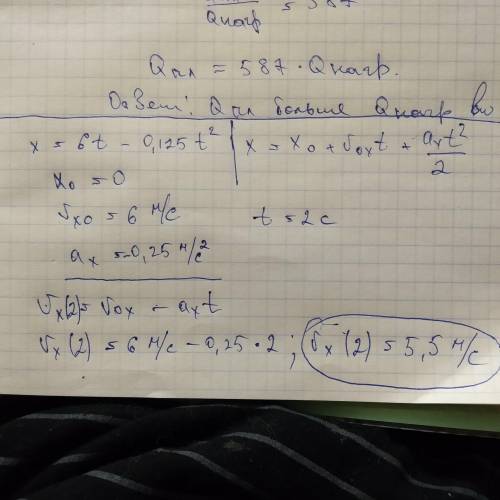 Qнагр = 587
Qпл = 587 · Qнагр.
Ответ: Qпл больше Qнагр во
x = 6t − 0,125t² | x = x₀ + v₀ₓt + aₓt²/2
x₀ = 0
vₓ₀ = 6 м/с t = 2 с
aₓ = −0,25 м/с²
vₓ(2) = v₀ₓ − aₓt
vₓ(2) = 6 м/с − 0,25 · 2 ; vₓ(2) = 5,5 м/с